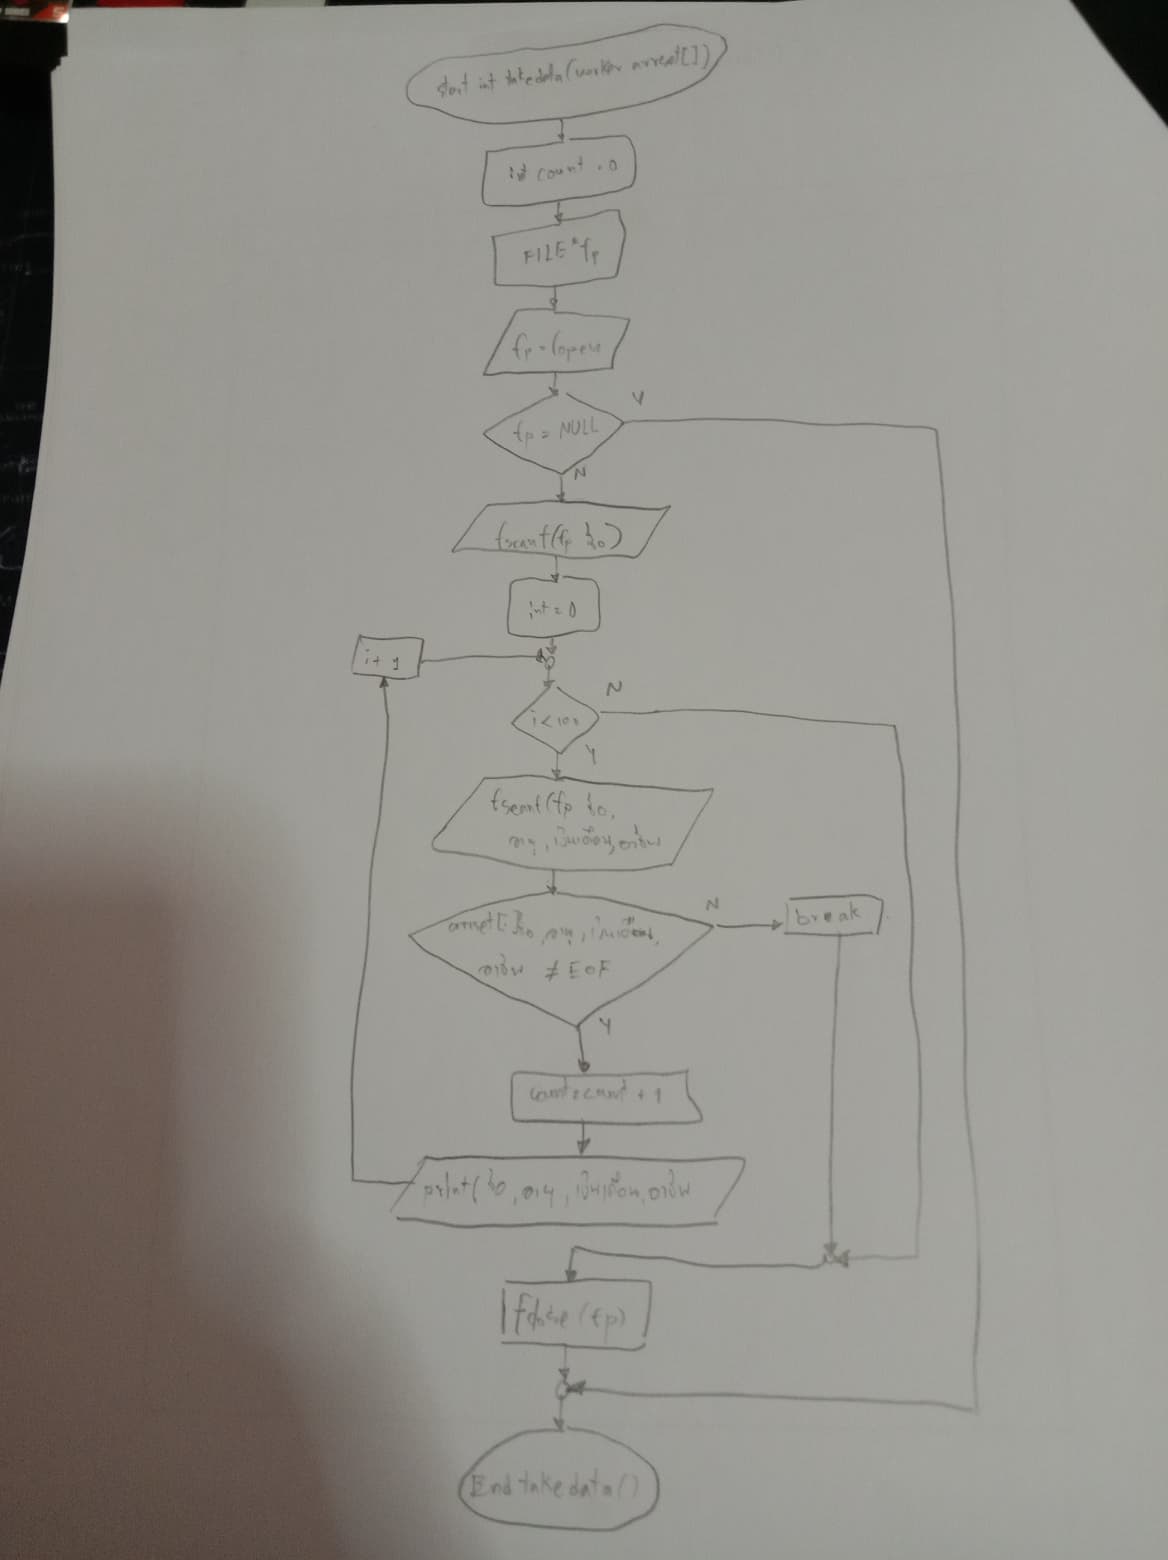 start int takedata(worker arrest[])
int count = 0
FILE *fp
fp = fopen
fp = NULL
Y
N
fscanf(fp ชื่อ)
int = 0
i+1
i<100
N
Y
fscanf(fp ชื่อ,
อายุ, เงินเดือน, อาชีพ
arrest[i]ชื่อ, อายุ, เงินเดือน,
อาชีพ ≠ EOF
N
break
Y
count=count + 1
print(ชื่อ, อายุ, เงินเดือน, อาชีพ
fclose(fp)
End takedata()